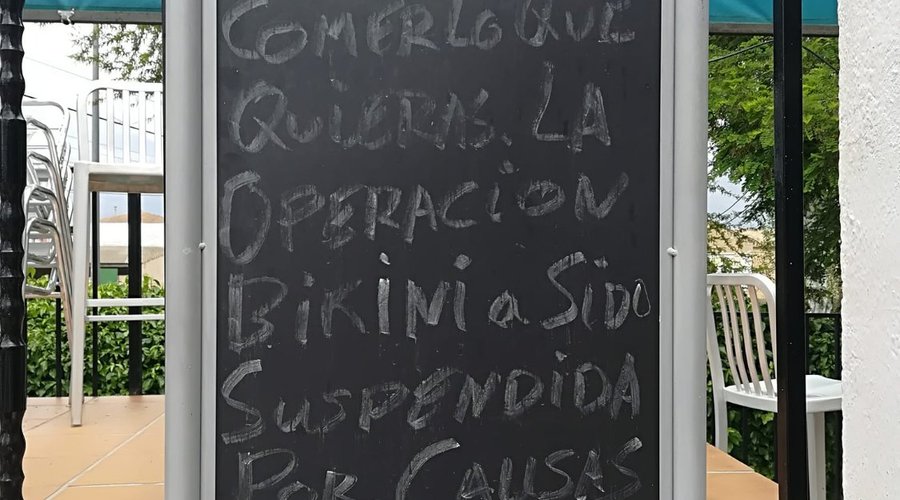 COMER LO QUE
QUIERAS. LA
OPERACIÓN
BIKINI a SIDO
SUSPENDIDA
POR CAUSAS